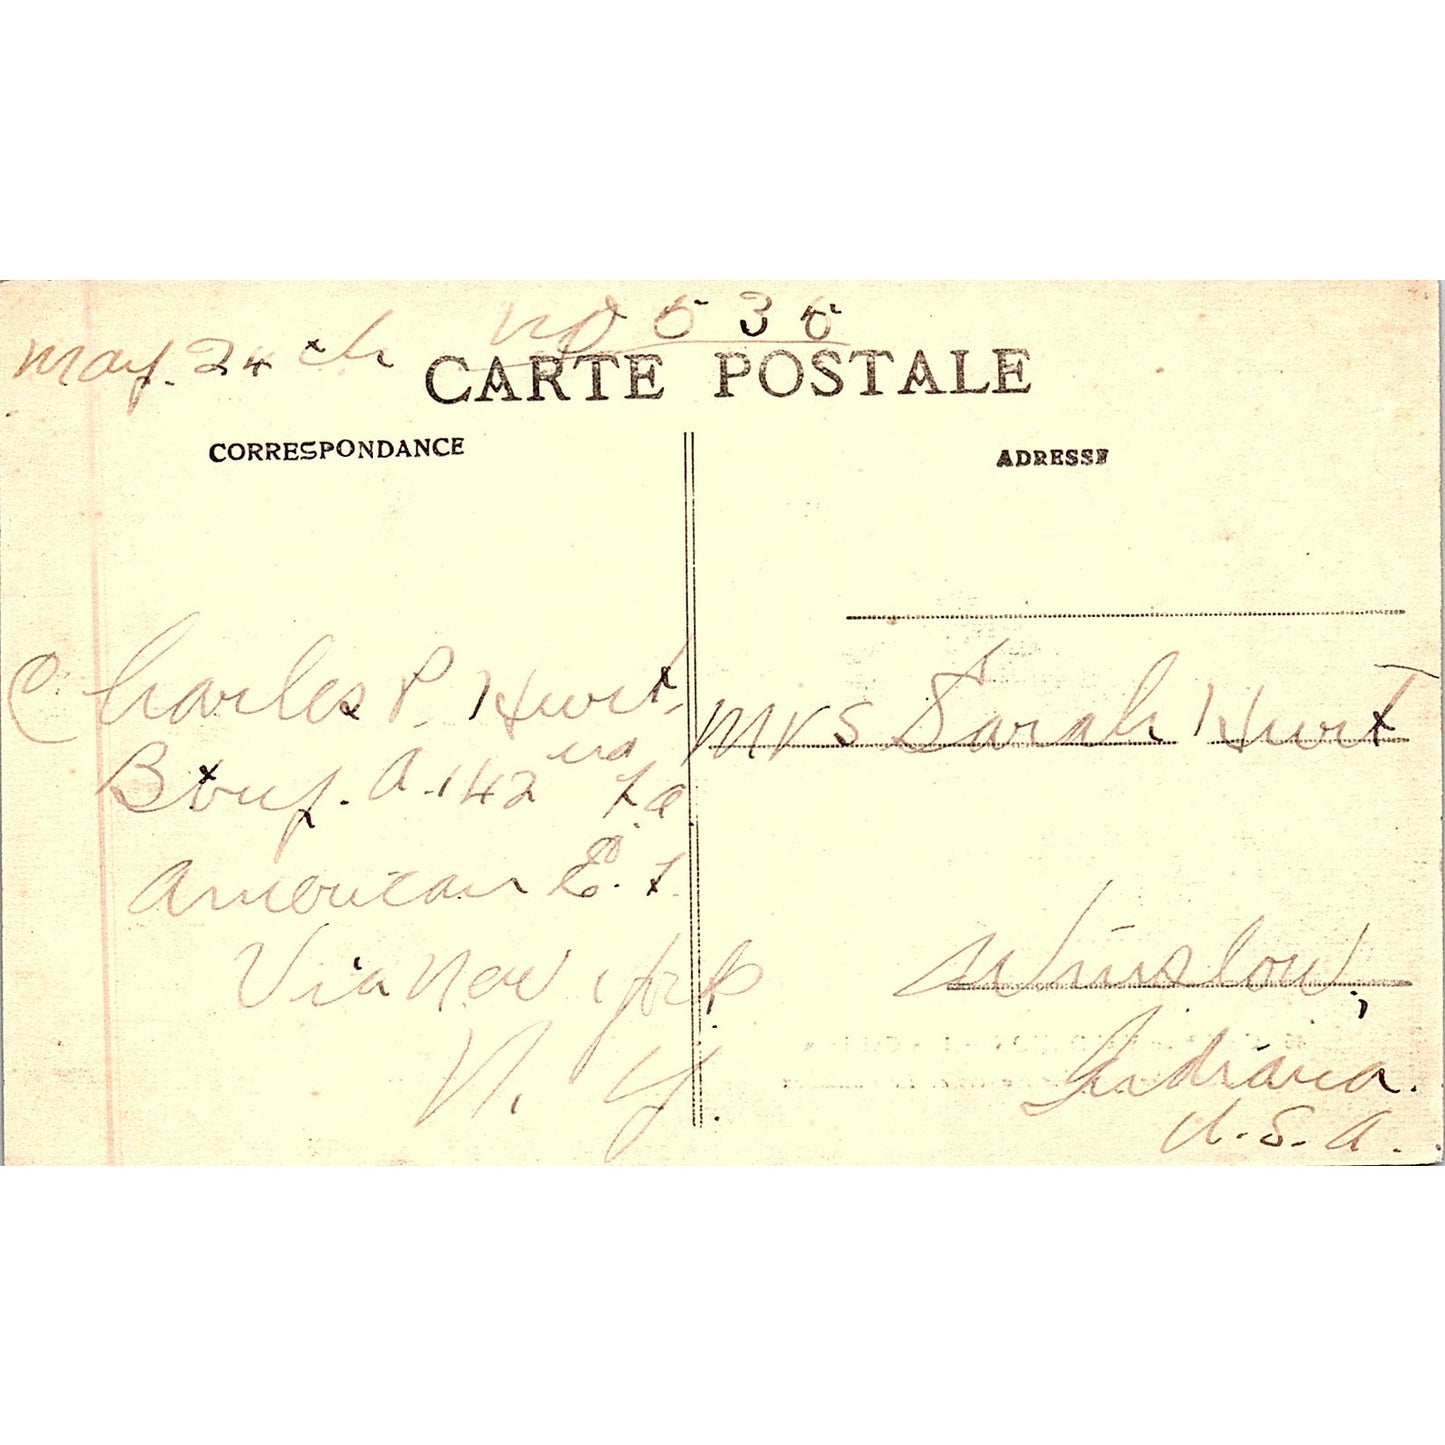 No 536
May. 24th
CARTE POSTALE
CORRESPONDANCE
ADRESSE
Charles P. Hurt,
Btry. A. 142nd F.A.
American E. F.
Via New York
N. Y.
Mrs Sarah Hurt
Winslow,
Indiana.
U.S.A.